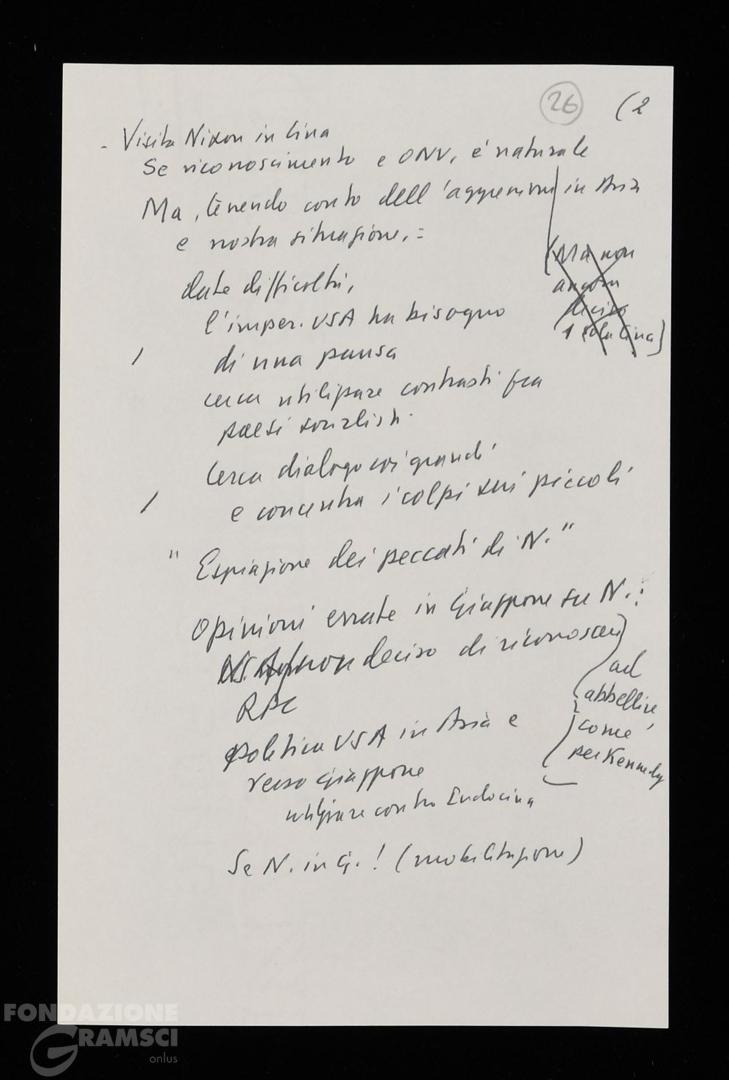 26 (2
- Visita Nixon in Cina
Se riconoscimento e ONU, è naturale
Ma, tenendo conto dell'aggressione in Asia
e nostra situazione, =
(Ma non
ancora
deciso
1 sola Cina)
date difficoltà,
l'imper. USA ha bisogno
/ di una pausa
cerca utilizzare contrasti fra
paesi socialisti.
Cerca dialogo coi grandi
/ e concentra i colpi sui piccoli
" Espiazione dei peccati di N. "
Opinioni errate in Giappone su N.:
deciso di riconoscere
RPC
politica USA in Asia e
verso Giappone
utilizzare contro Indocina
ad
abbellire,
come
per Kennedy
Se N. in G. ! (mobilitazione)
FONDAZIONE
GRAMSCI
onlus